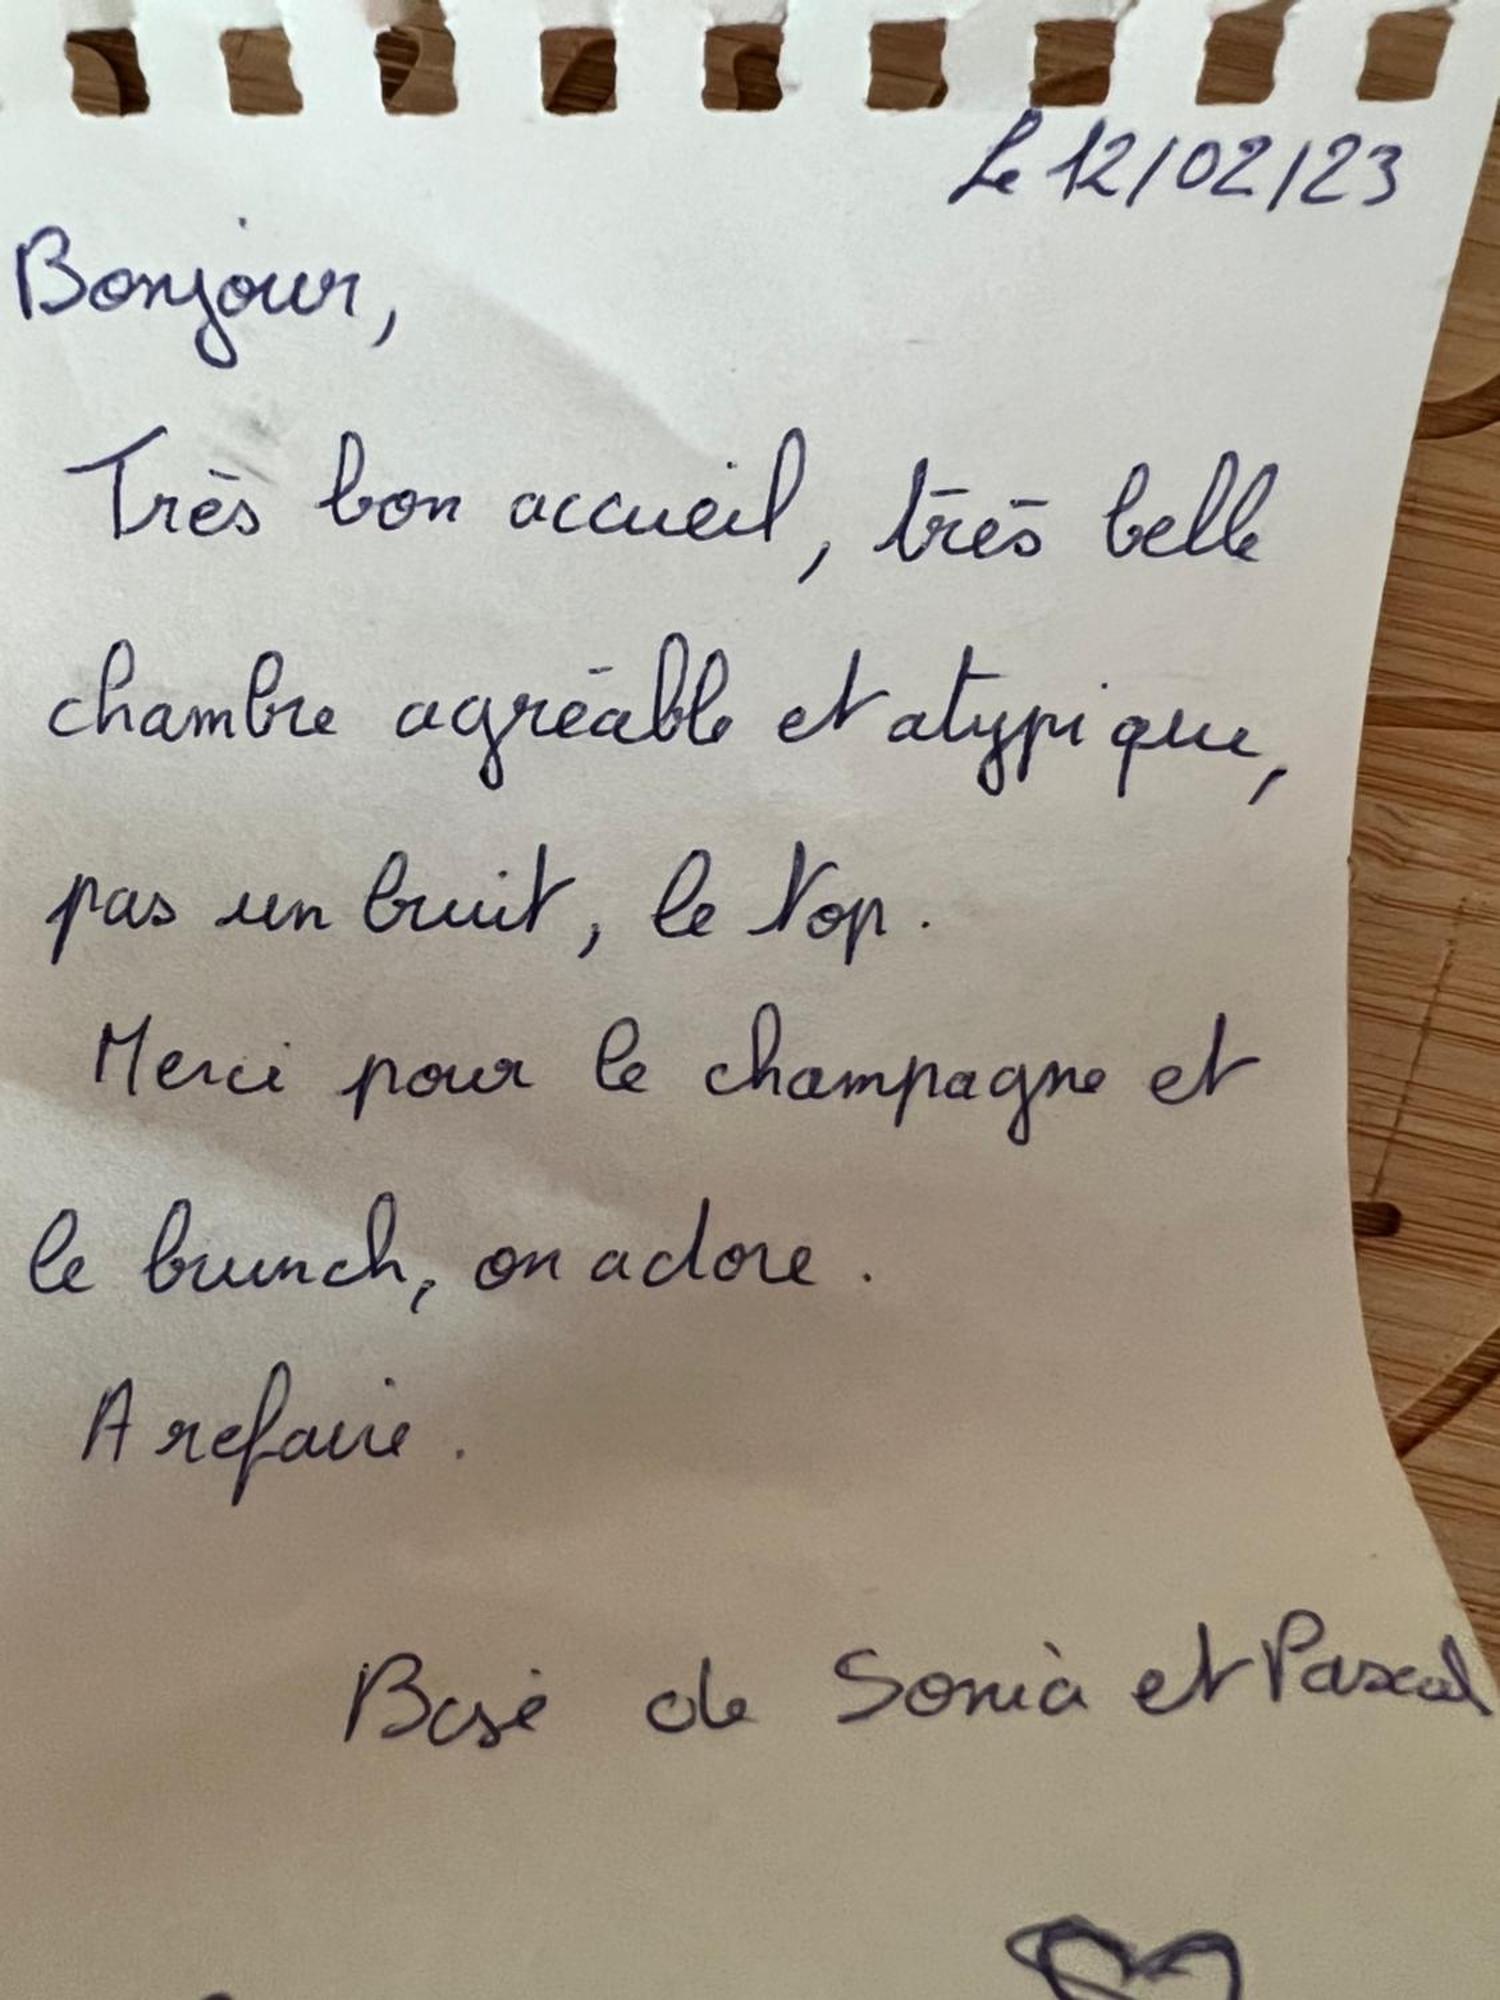 Le 12/02/23
Bonjour,
Très bon accueil, très belle
chambre agréable et atypique,
pas un bruit, le top.
Merci pour le champagne et
le brunch, on adore.
A refaire.
de Sonia et Pascal